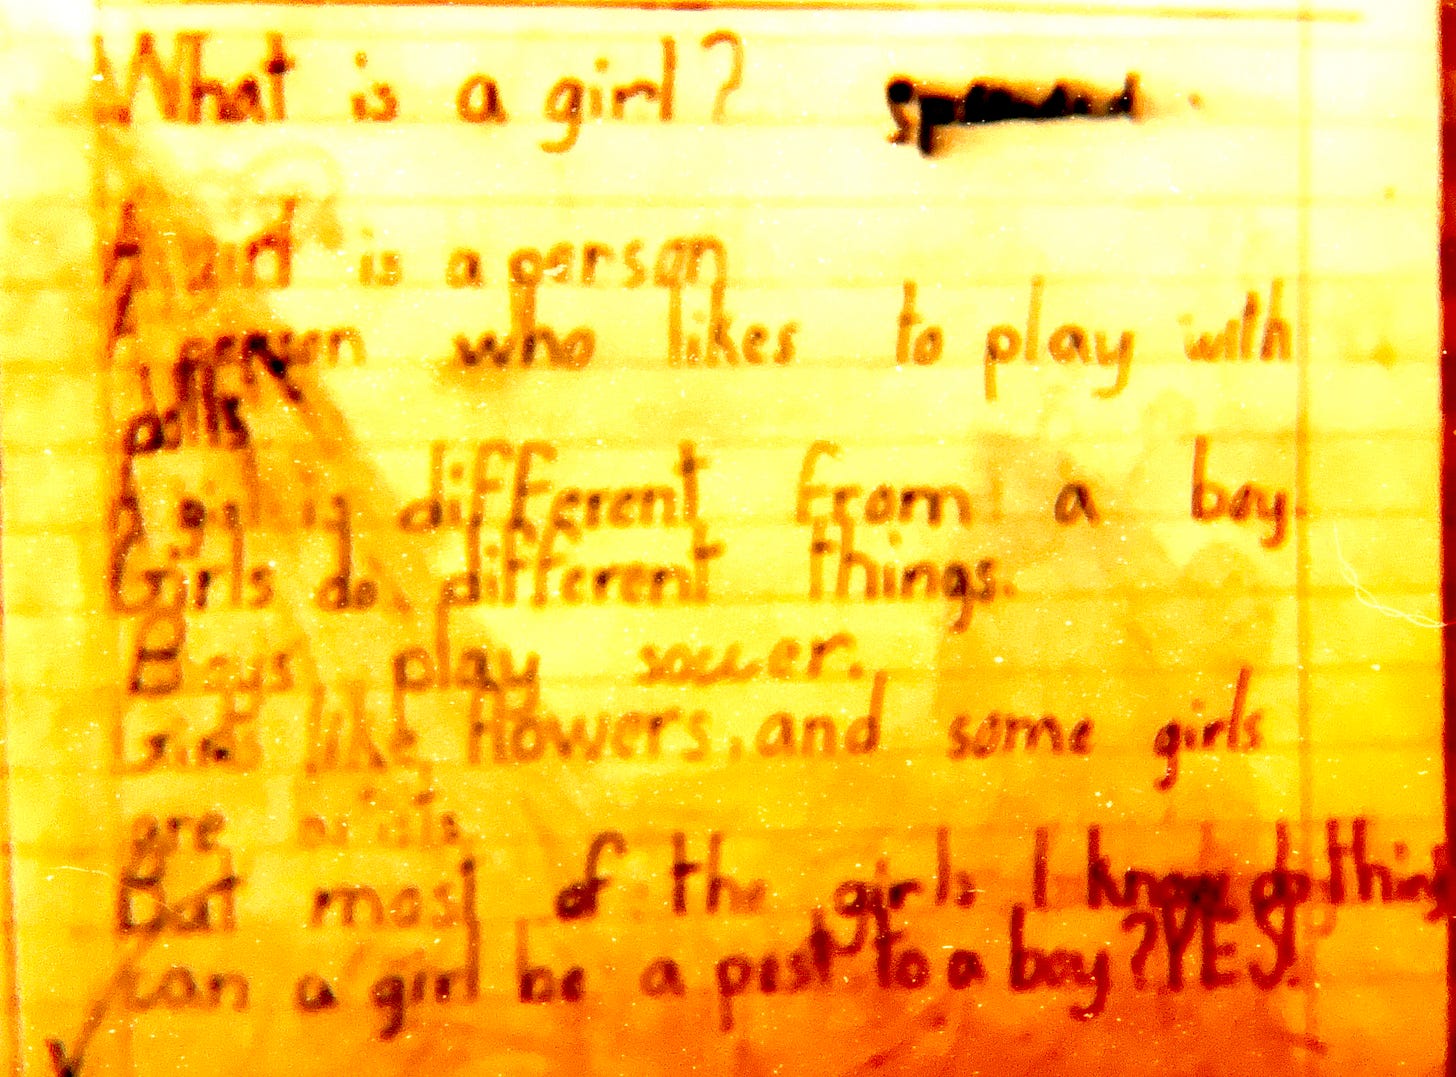 What is a girl?
A girl is a person
person who likes to play with
dolls
A girl is different from a boy.
Girls do different things.
Boys play soccer.
Girls like flowers, and some girls
are
But most of the girls I know do thing
can a girl be a pest to a boy? YES!